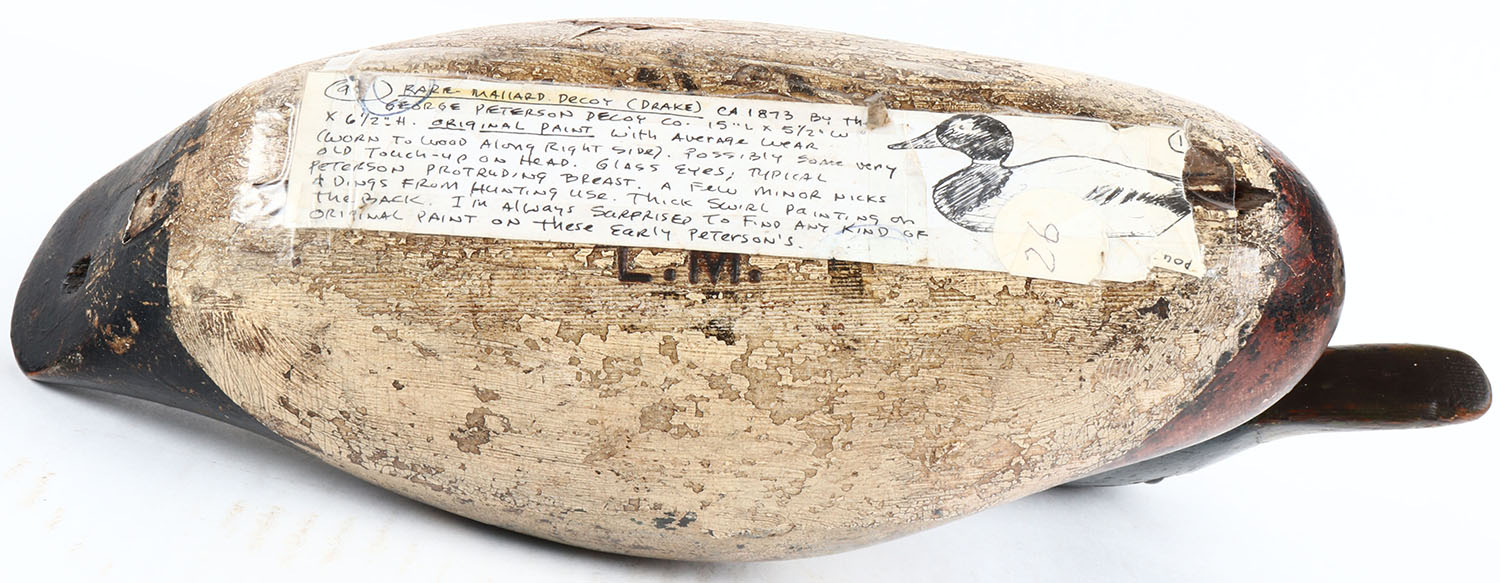 9 RARE MALLARD DECOY (DRAKE) CA 1873 By th
GEORGE PETERSON DECOY CO. 15"L X 5½"W
X 6½"H. ORIGINAL PAINT with AVERAGE WEAR
(WORN TO WOOD ALONG RIGHT SIDE). POSSIBLY SOME VERY
OLD TOUCH-UP ON HEAD. GLASS EYES, TYPICAL
PETERSON PROTRUDING BREAST. A FEW MINOR NICKS
& DINGS FROM HUNTING USE. THICK SWIRL PAINTING ON
THE BACK. I'M ALWAYS SURPRISED TO FIND ANY KIND OF
ORIGINAL PAINT ON THESE EARLY PETERSON'S.
1
26
L.M.